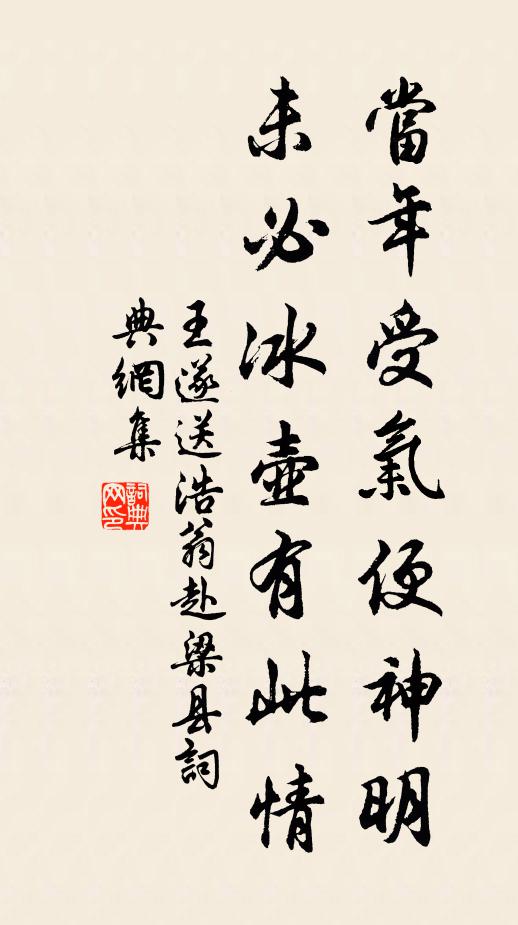 當年受氣便神明
未必冰壺有此情
王遂送浩翁赴梁县詞
典網集
詞典
网印